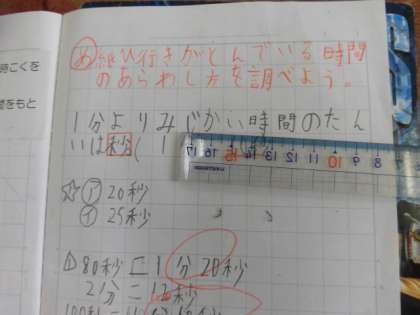 時こくを
をもと
め 紙ひ行きがとんでいる時間
のあらわし方を調べよう。
1分よりみじかい時間のたん
いは秒(1
17 16 15 14 13 12 11 10 9 8 7
☆ア 20秒
イ 25秒
1 80秒=1分20秒